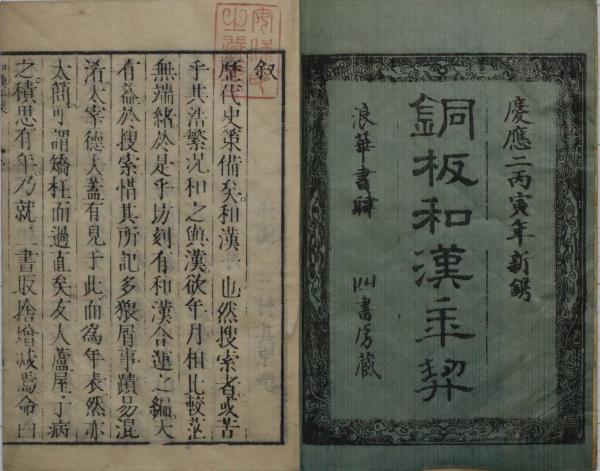 慶應二丙寅年新鐫
銅板和漢年契
浪華書肆 四書房蔵
叙
歴代史策備矣和漢一也然搜索者或苦
乎其浩繁况和之與漢欲年月相比較茫
無端緒於是乎坊刻有和漢合運之編大
有益於搜索惜其所記多猥屑事蹟易混
淆太宰德夫蓋有見于此而為年表然亦
太簡可謂矯枉而過直矣友人蘆屋子病
之積思有年乃就二書取捨增減焉命曰